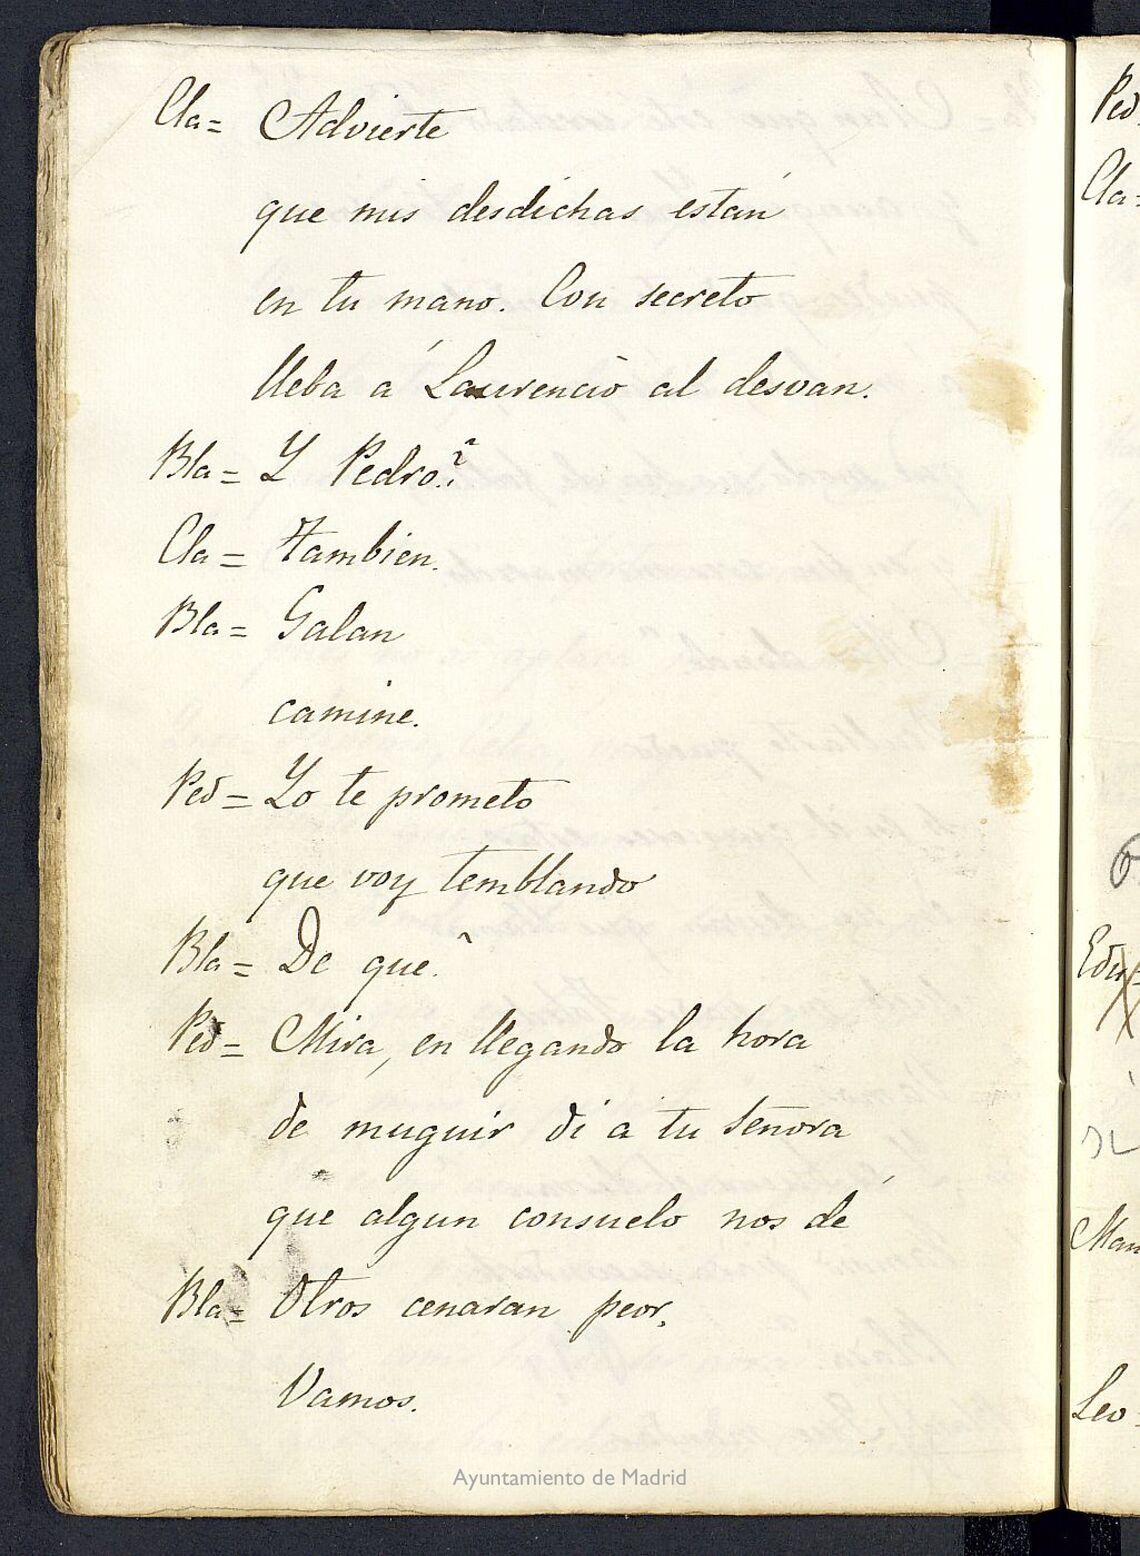 Cla= Advierte
que mis desdichas están
en tu mano. Con secreto
lleba á Laurencio al desvan.
Bla= Y Pedro?
Cla= tambien.
Bla= Galan
camine.
Ped= Yo te prometo
que voy temblando
Bla= De que?
Ped= Mira, en llegando la hora
de muguir di a tu señora
que algun consuelo nos dé
Bla= Otros cenaran peor.
Vamos.
Ayuntamiento de Madrid
Ped
Cla=
Man
Leo=